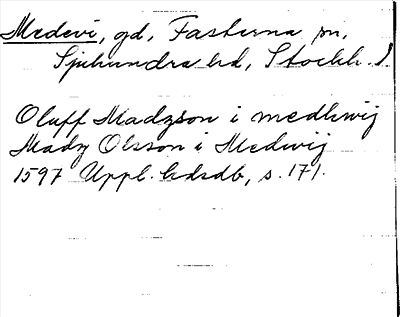 Medevi, gd, Fasterna sn,
Sjuhundra hd, Stockh. l.
Oluff Madzson i medhwij
Madz Olsson i Medwij
1597 Uppl. hdrdb, s. 171.